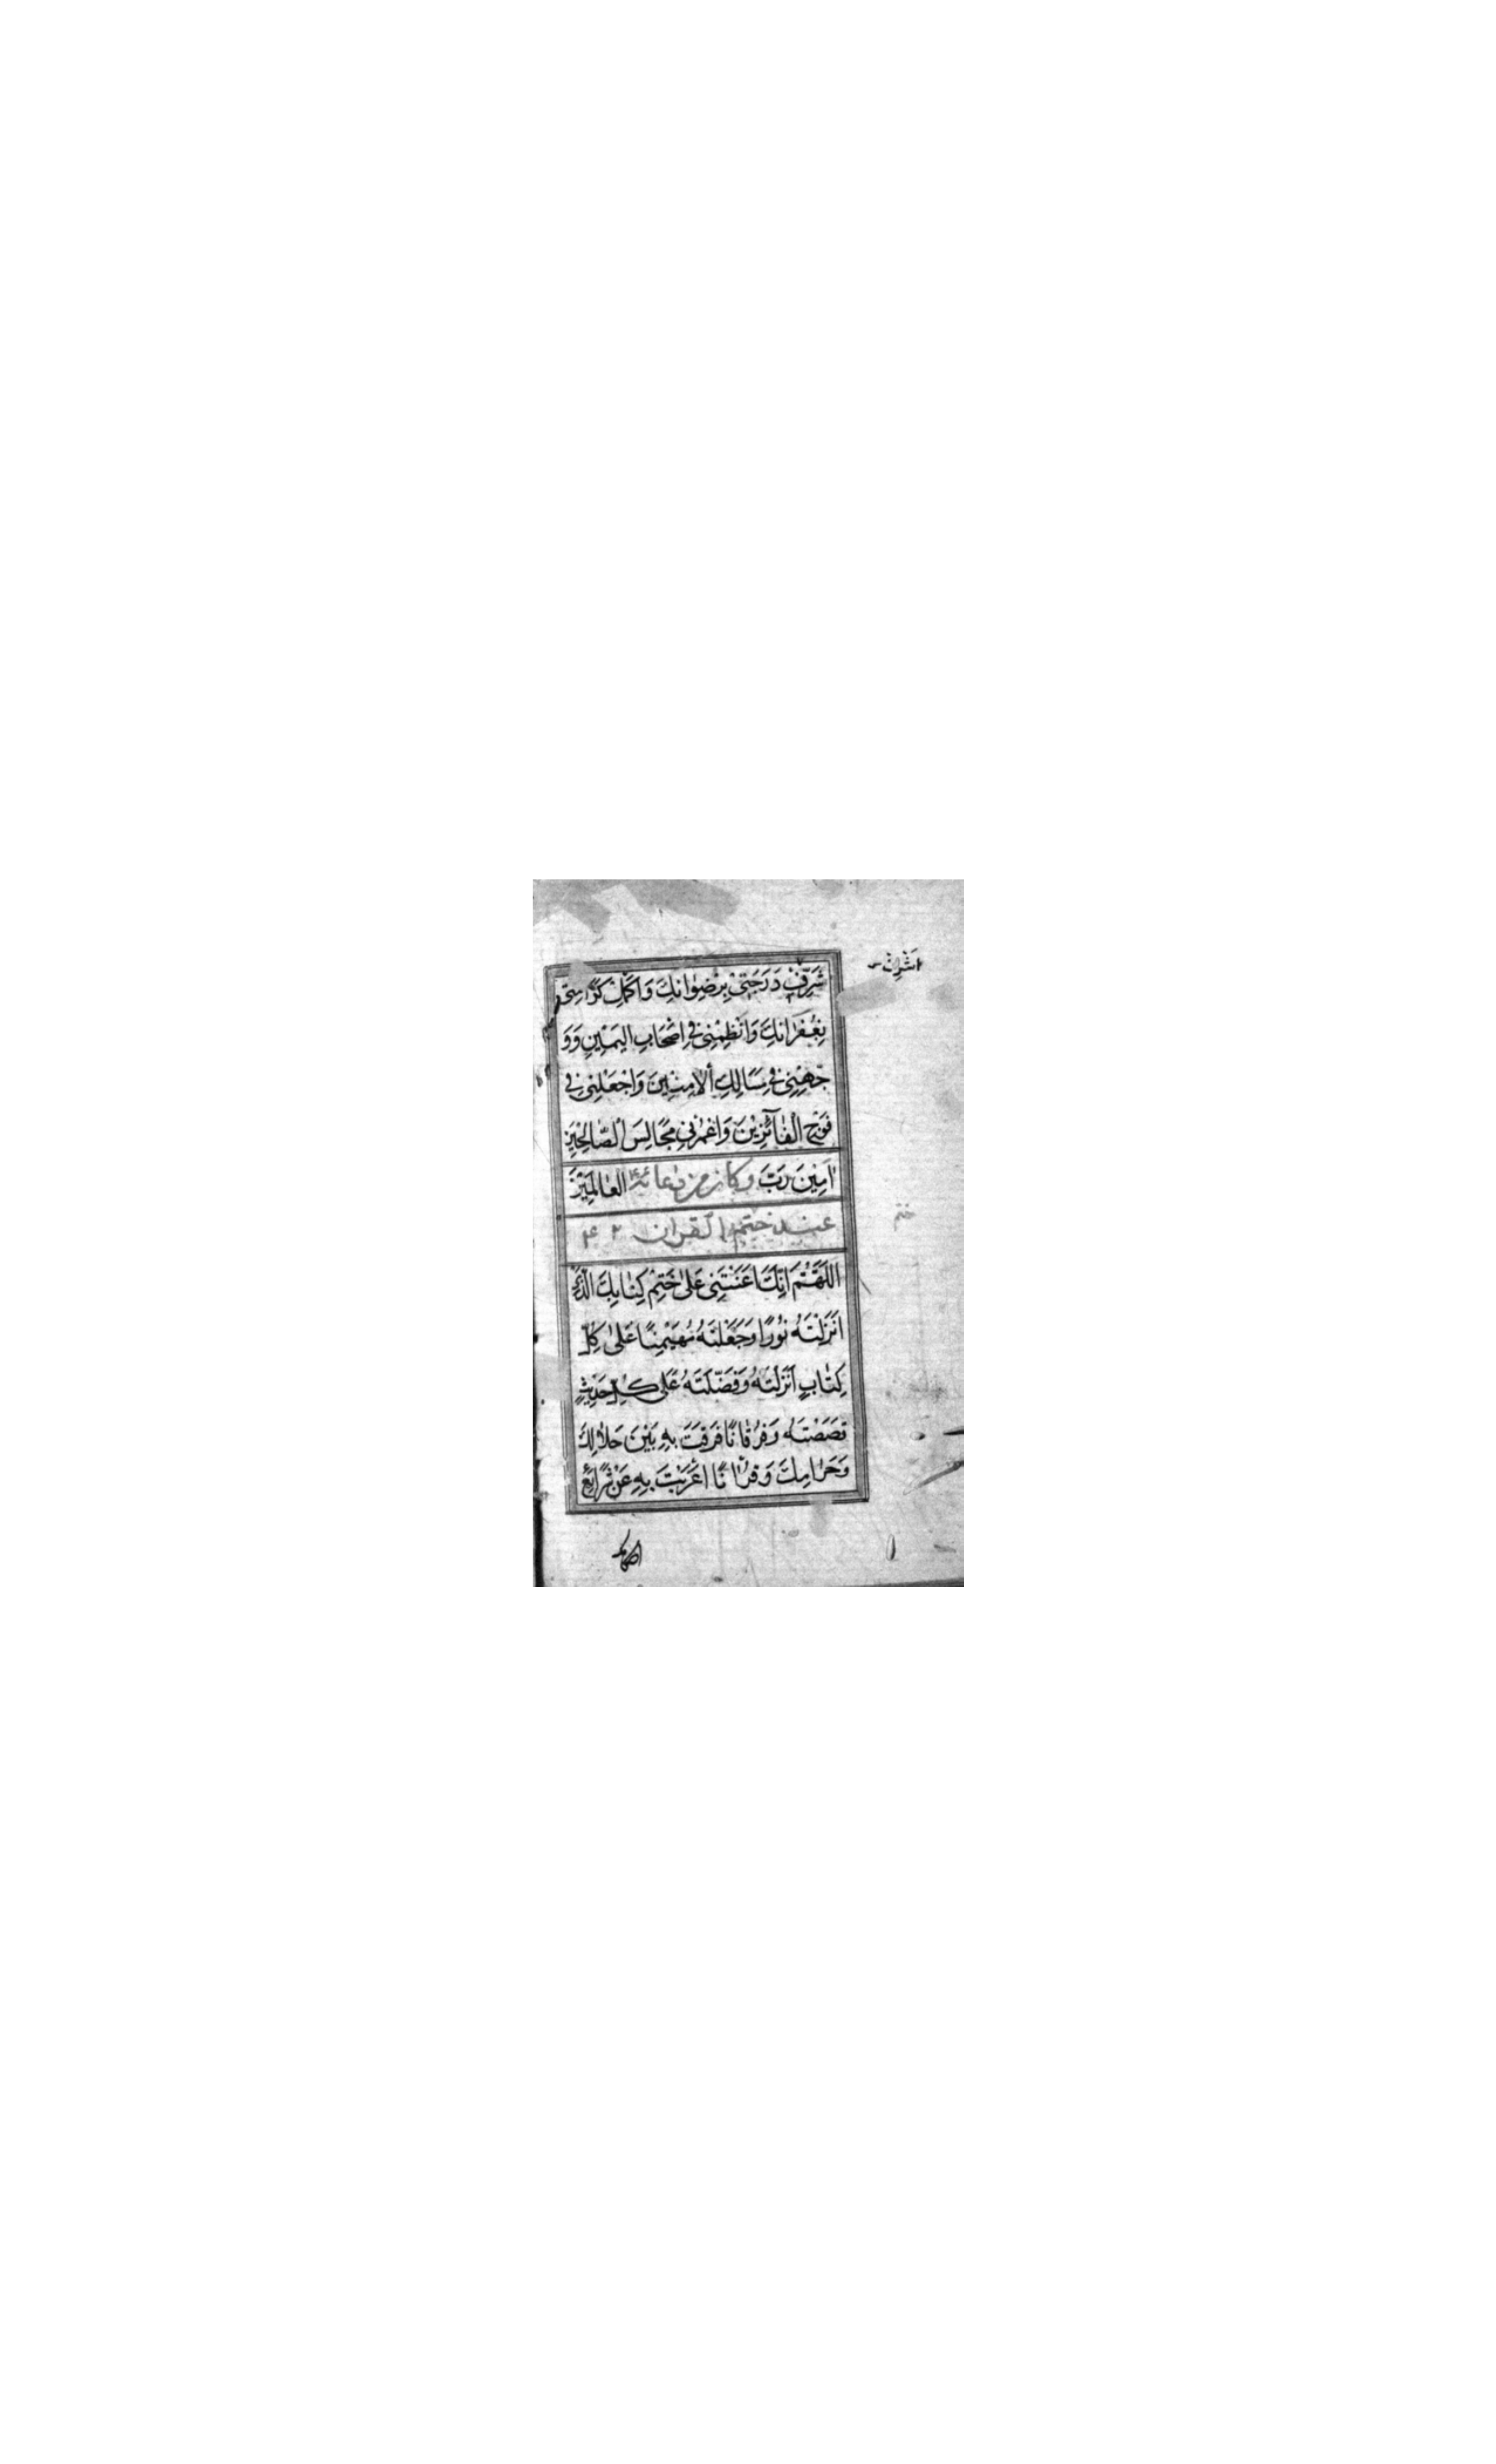 اَشْرِفْ
شَرِّفْ دَرَجَتِیْ بِرِضْوٰانِكَ وَاَكْمِلْ كَرٰامَتِی
بِغُفْرَانِكَ وَانْظِمْنِی فِی اَصْحَابِ الیَمِیْنِ وَوَ
جِّهْنِی فِی مَسَالِكِ الاٰمِنِیْنَ وَاجْعَلْنِی فِی
فَوْجِ الْفَآئِزِیْنَ وَاعْمُرْبِی مَجَالِسَ الصّٰالِحِیْنَ
اٰمِیْنَ رَبَّ وكان من دعائه العٰالَمِیْنَ
عند ختم القران ۴۲
ختم
اَللّٰهُمَّ اِنَّكَ اَعَنْتَنِی عَلٰی خَتْمِ كِتٰابِكَ الَّذِی
اَنْزَلْتَهُ نُوْرًا وَجَعَلْتَهُ مُهَیْمِنًا عَلٰی كُلِّ
كِتٰابٍ اَنْزَلْتَهُ وَفَضَّلْتَهُ عَلٰی كُلِّ حَدِیْثٍ
قَصَصْتَهُ وَفُرْقٰانًا فَرَقْتَ بِهِ بَیْنَ حَلاٰلِكَ
وَحَرٰامِكَ وَقُرْاٰنًا اَعْرَبْتَ بِهِ عَنْ شَرٰایِعِ